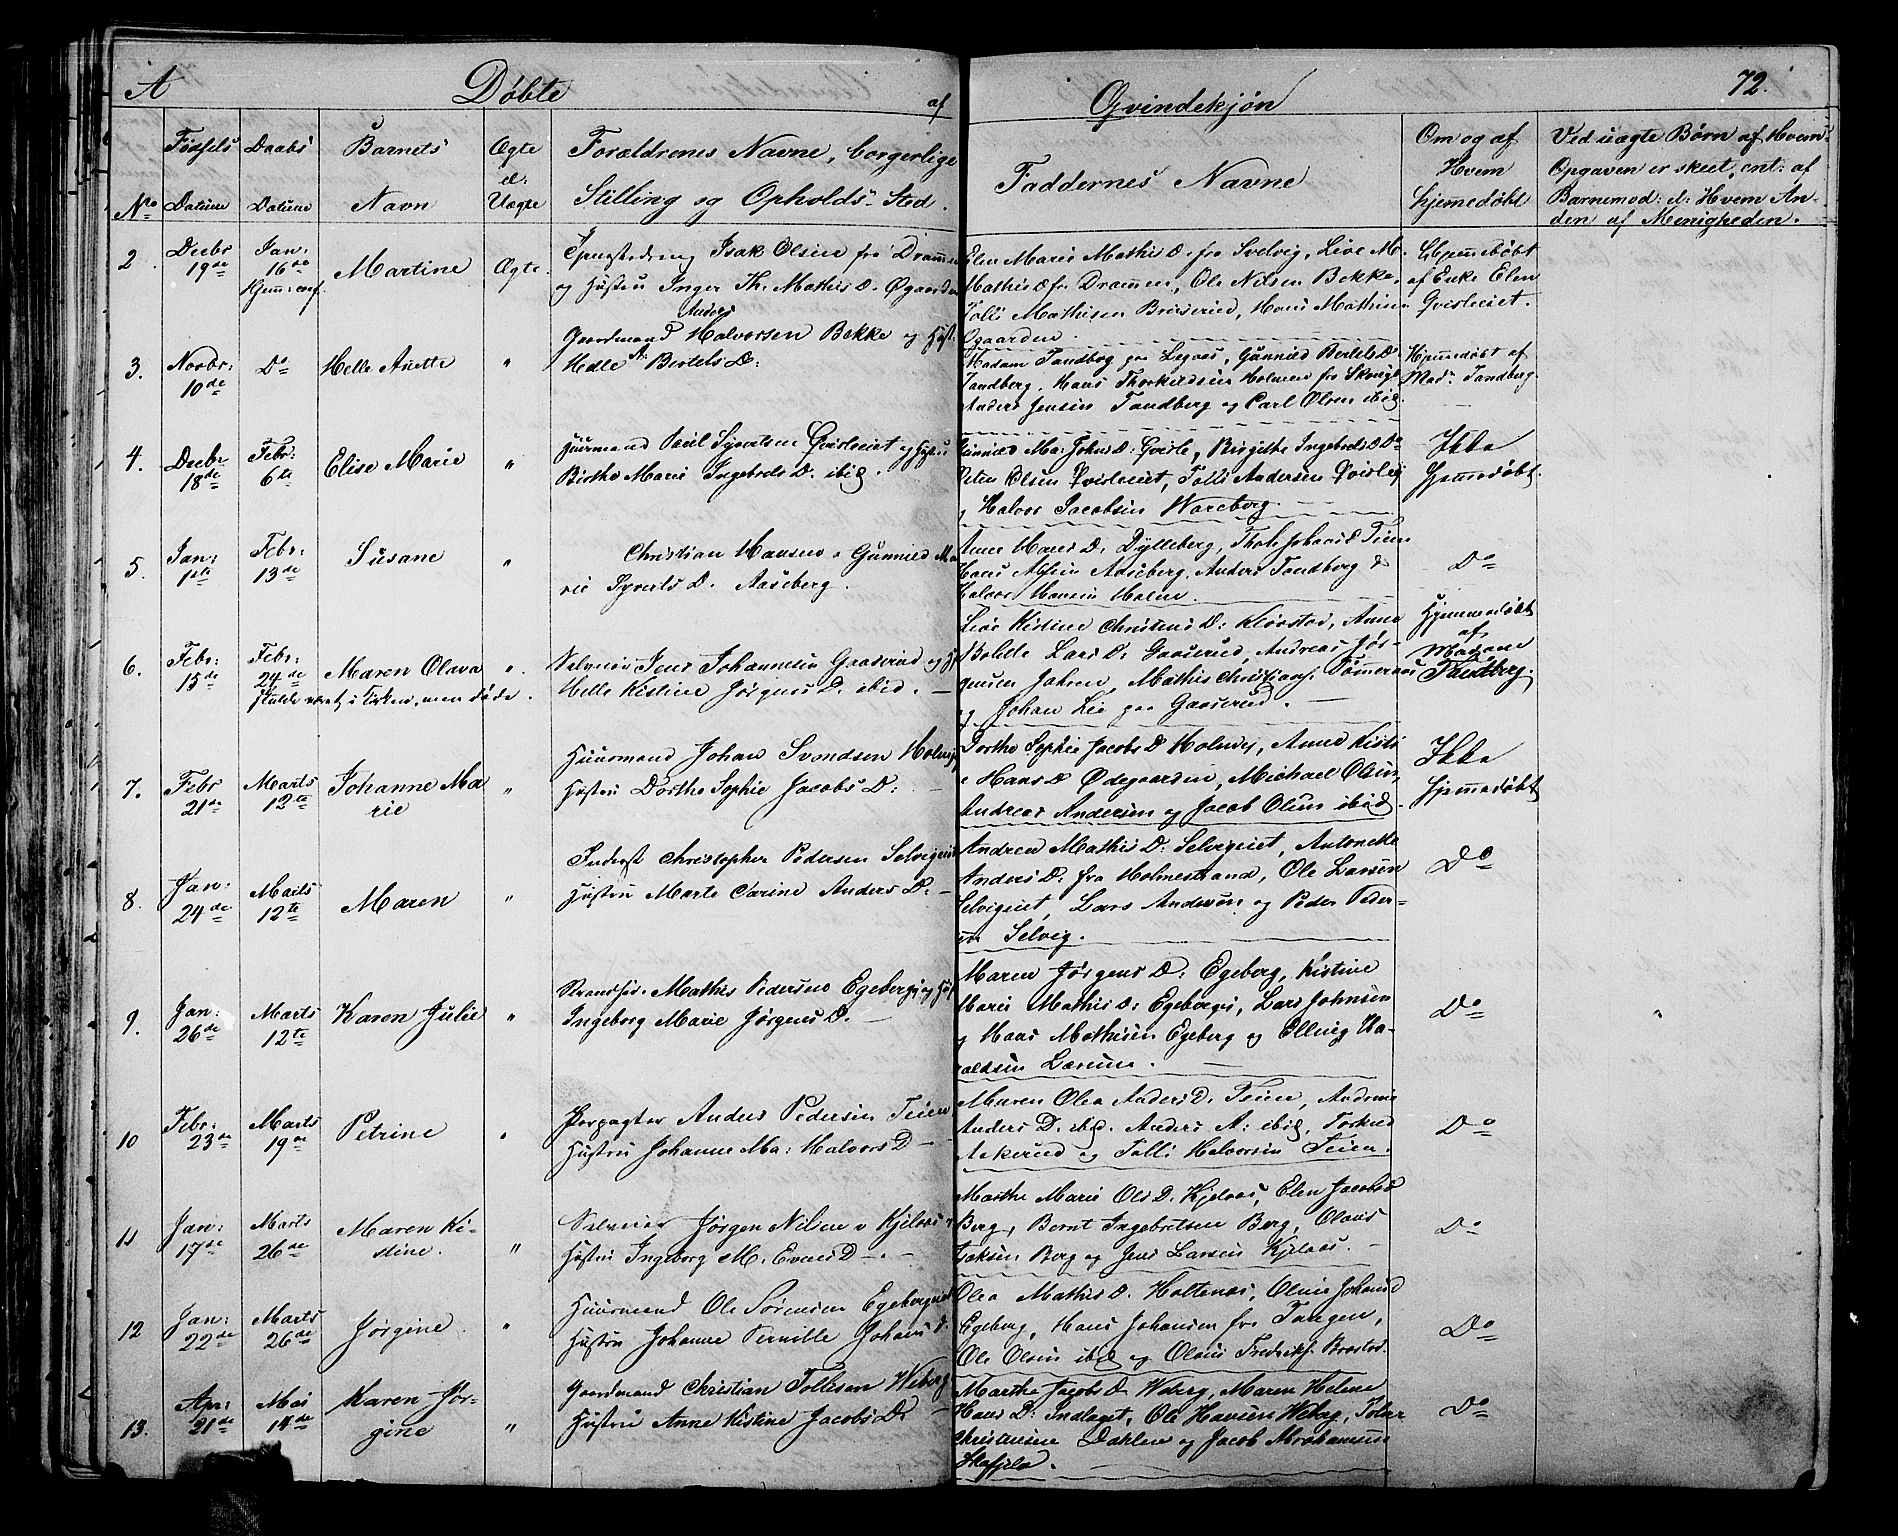 A Döbte af Qvindekjön 72.
No Födsels Datum Daabs Datum Barnets Navn Ægte el: Uægte Forældrenes Navne, borgerlige Stilling og Opholds-Sted. Faddernes Navne Om og af Hvem hjemedöbt Ved uægte Börn af Hvem Opgaven er skeet, ent: af Barnemod: el: Hvem Anden af Menigheden.
2. Decbr 19de Jan: 16de Hjem: conf. Martine Ægte.
Isak Olsen fra Drammen
og Hustru Inger Th. Mathis D. Øgaarden
Elen Marie Mathis D. fra Svelvig, Live M.
Mathis D. fra Drammen, Ole Nilsen Bekke,
Tolli Mathisen Bruserud, Hans Mathisen
Øgaarden.
Hjemmedöbt
af Enke Elen
Qvisleeiet.
3. Novbr. 10de Do Helle Anette "
Anders
Gaardmand Halvorsen Bekke og Hust:
Hedle A. Bertels D:
Madam Tandberg paa Legaas, Gunnild Bertels D.
Tandberg, Hans Thorkildsen Holmen fra Skouge
Anders Jensen Tandberg og Carl Olsen ibid.
Hjemmedöbt af
Mad. Tandberg.
4. Decbr 18de Febr: 6te Elise Marie "
Huusmand Paul Syvertsen Qvisleeiet og Hustru
Birthe Marie Ingebreds D. ibid.
Gunnild Ma: Johns D: Qvisle, Birgithe Ingebreds D. Do
Peter Olsen Qvisleeiet, Tolli Andersen Qvisleei
og Halvor Jacobsen Wareberg.
Ikke
Hjemmedöbt.
5. Jan: 1ste Febr: 13de Susane "
Christian Hansen & Gunnild Ma
rie Syverts D. Aaseberg.
Anne Hans D. Dylleberg, Thale Johans D Teien
Hans Aaseberg, Anders Tandberg &
Halvor Hansen Holm.
Do
6. Febr: 15de Febr: 24de Maren Olava ".
skulde været i Kirken, men döde.
Selveier Jens Johannesen Graaserud og H
Helle Kistine Jörgens D. ibid. —
Live Kistine Christens D: Klovstad, Anne
Bolide Lars D: Gaaserud, Andreas Jör-
gensen Jahren, Mathis Christians. Tömmeraas
og Johan Lie paa Gaaserud. —
Hjemmedöbt
af
Madame
Tandberg.
7. Febr 21de Marts 12te Johanne Ma
rie "
Huusmand Johan Svendsen Holmej
Hustru Dorthe Sophie Jacobs D: —
Dorthe Sophie Jacobs D Holmej, Anne Kisti
e Hans D Ødegaarden, Michael Olsen,
Andreas Andersen og Jacob Olsen ibid.
Ikke
Hjemmedöbt
8. Jan: 24de Marts 12te Maren "
Inderst Christopher Pedersen Selvigeiet
Hustru Marte Carine Anders D. —
Andrea Mathis D: Selvigeiet, Antonette
Anders D. fra Holmestrand, Ole Larsen
Selvigeiet, Lars Andersen og Peder Peder-
sen Selvig.
Do
9. Jan: 26de Marts 12te Karen Julie "
Strandsid. Mathis Pedersen Egebergei og Hus
Ingeborg Marie Jörgens D. —
Maren Jörgens D: Egeberg, Kistine
Marie Mathis D: Egebergei, Lars Johnsen
og Hans Mathisen Egeberg og Elling Ha-
raldsen Lærum. —
Do
10 Febr: 23de Marts 19de Petrine "
Forpagter Anders Pedersen Teien
Hustru Johanne Ma: Halvors D —
Maren Olea Anders D. Teien, Andrine
Anders D. ibid. Anders A: ibid, Torkild
Askerud og Tolli Halvorsen Teien.
Do
11 Jan: 17de Marts 26de Maren Ki-
stine. "
Selveier Jörgen Nilsen v Kjelaas
Hustru Ingeborg M. Evens D —. —
Marthe Marie Ols D. Kjelaas, Elen Jacobs D
Berg, Bernt Ingebretsen Berg, Olaus
Isaksen Berg og Jens Larsen Kjelaas. —
Do
12 Jan: 22de Marts 26de Jörgine "
Huusmand Ole Sörensen Egebergeiet
Hustru Johanne Pernille Johans D.
Olea Mathis D. Holtenæs, Oline Johans D
Egeberg, Hans Johansen fra Tangen,
Ole Olsen ibid og Olaus Fredriks. Brastad.
Do
13. Apr: 21de Mai 14de Karen Jör-
gine "
Gaardmand Christian Tollisen Weberg
Hustru Anne Kistine Jacobs D. —
Marthe Jacobs D Weberg, Maren Helene
Hans D: Indlaget, Ole Hansen Weberg, Peder
Christensen Dahlen og Jacob Abrahamsen
Skafjeld. —
Do